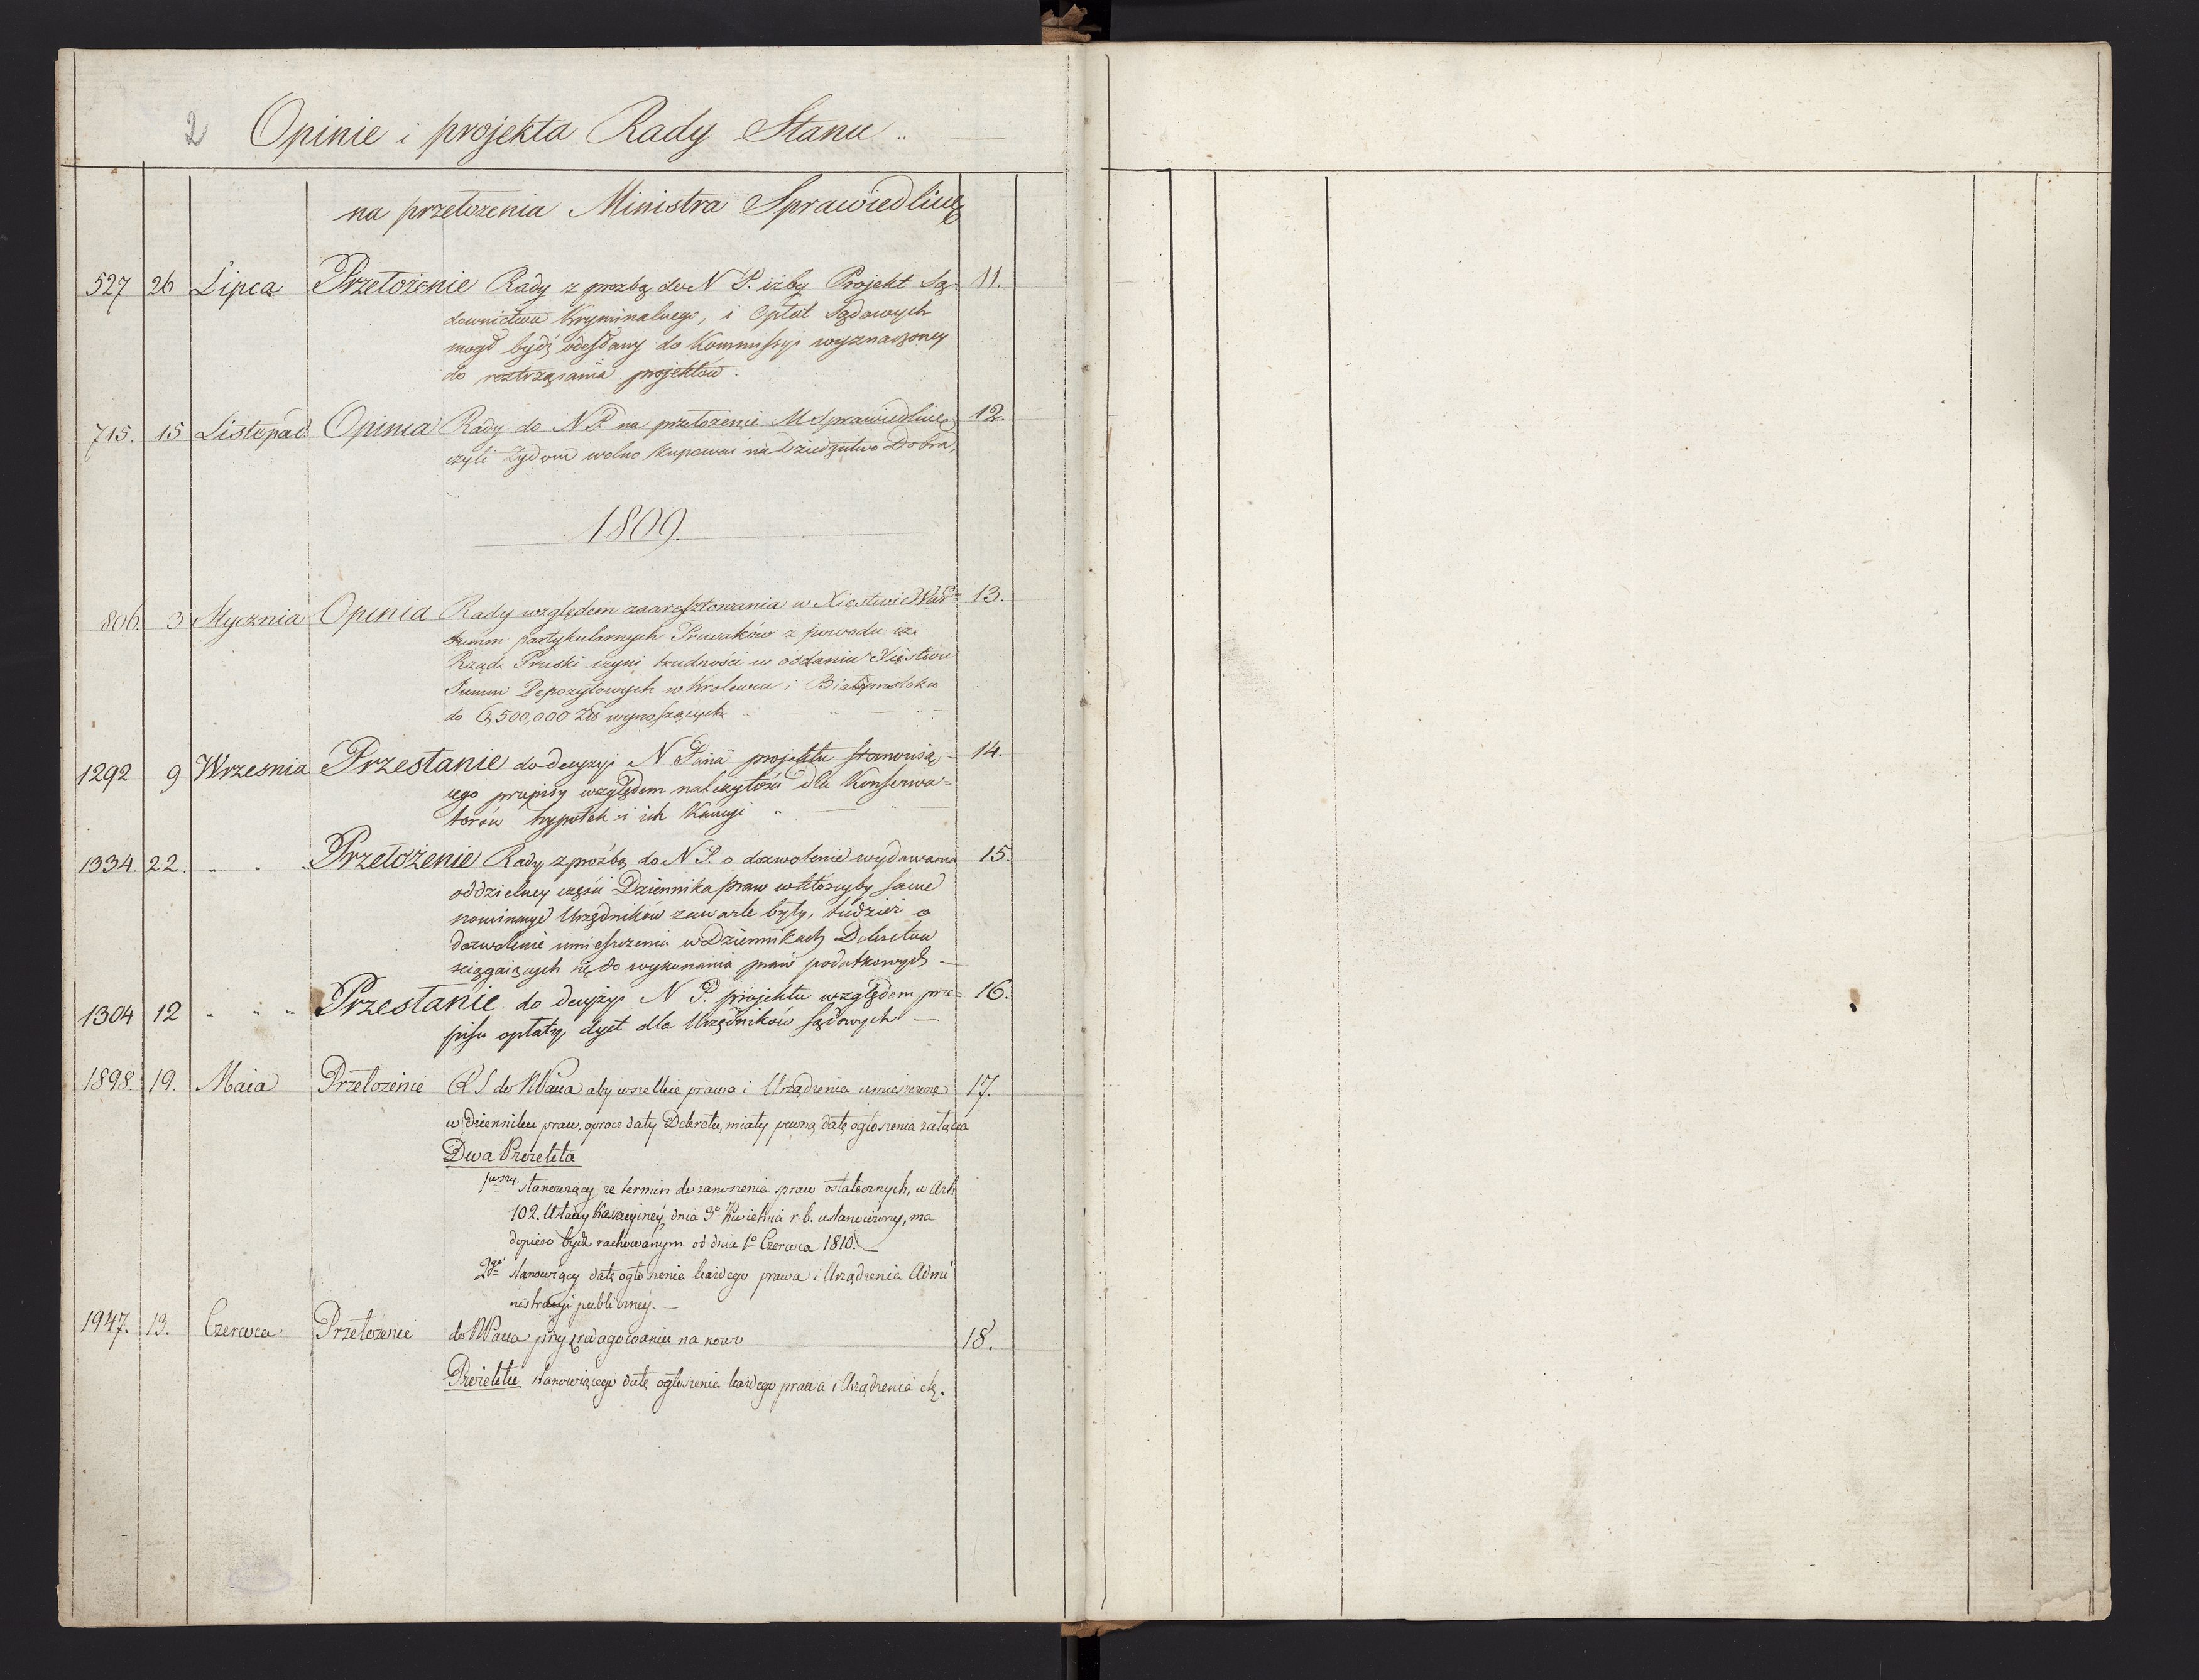 2 Opinie i projekta Rady Stanu
na przełożenia Ministra Sprawiedliwę
527 26 Lipca Przełożenie Rady z prozbą do N P. iżby Projekt Są- 11.
downictwa Kryminalnego, i Opłat Sądowych
mogł bydź odesłany do Kommissyi wyznaczoney
do roztrząsania projektów.
715. 15 Listopad. Opinia Rady do N P. na przełożenie M Sprawiedliwę 12.
czyli Żydom wolno kupować na Dziedzictwo Dobra,
1809.
806. 3 Stycznia Opinia Rady względem zaaresztowania w Xięstwie War 13.
Summ partykularnych Prusaków z powodu iż
Rząd Pruski czyni trudności w oddaniu Xięstwu
Summ Depozytowych w Krolewcu i Białymstoku
do 6,500,000 Zło wynoszących
1292 9 Wrzesnia Przesłanie do decyzyi N Pana projektu stanowią- 14.
cego przepisy względem należytości dla Konserwa=
torów hypotek i ich Kaucyi
1334. 22. " " " Przełożenie Rady z proźbą do N P. o dozwolenie wydawania 15.
oddzielney części Dziennika praw w którejby same
nominacye Urzędników zawarte były, tudzież o
dozwolenie umieszczenia w Dziennikach Dekretów
sciągaiących się do wykonania praw podatkowych -
1304 12 " " " Przesłanie do decyzyi N P. projektu względem prze= 16.
pisu opłaty, dyet dla Urzędników sądowych —
1898. 19. Maia Przełożenie R S do NPana aby wszelkie prawa i Urządzenia umieszczone 17.
w Dzienniku praw, oprocz daty Dekretu, miały pewną datę ogłoszenia załącza
Dwa Proiekta
stanowiący, że termin do zanoszenia spraw ostatecznych, w Art.
102. Ustawy Kasacyiney, dnia 3° Kwietnia r. b. ustanowiony, ma
dopiero bydz rachowanym od dnia 1° Czerwca 1810. —
2gi stanowiący datę ogłoszenia każdego prawa i Urządzenia Admi
nistracyi publiczney. —
1947. 13. Czerwca Przełożenie do NPana przy zredagowaniu na nowo 18.
Proiektu stanowiącego datę ogłoszenia każdego prawa i Urządzenia etc.